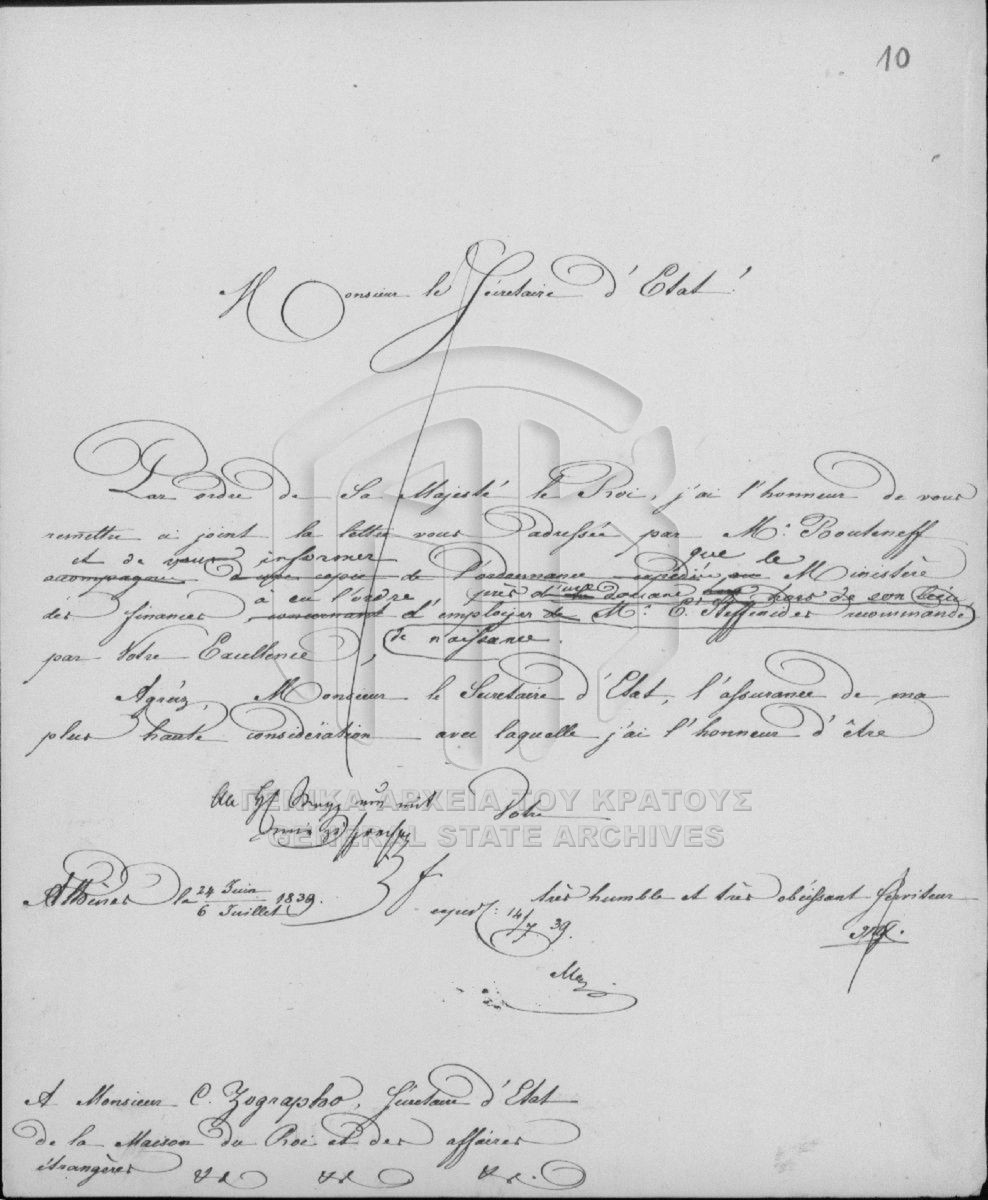 10
Monsieur le Sécretaire d'Etat!
Par ordre de Sa Majesté le Roi, j'ai l'honneur de vous
remettre ci joint la lettre vous adressée par Mr. Bouteneff
et de vous informer que le
accompagnée d'une copie de l'ordonnance expédiée au Ministère
à eu l'ordre près d'une douane hors de son lieu
des finances, concernant d'employer de Mr. C. Steffanides recommandé
de naissance.
par Votre Excellence,
Agréez, Monsieur le Secretaire d'Etat, l'assurance de ma
plus haute considération avec laquelle j'ai l'honneur d'être
ΓΕΝΙΚΑ ΑΡΧΕΙΑ ΤΟΥ ΚΡΑΤΟΥΣ
GENERAL STATE ARCHIVES
Votre
Athènes le 24 Juin / 6 Juillet 1839.
très humble et très obéissant Serviteur
exped. 14/7 39.
A Monsieur C. Zographo, Sécretaire d'Etat
de la Maison du Roi et des affaires
étrangères &c &c &c.